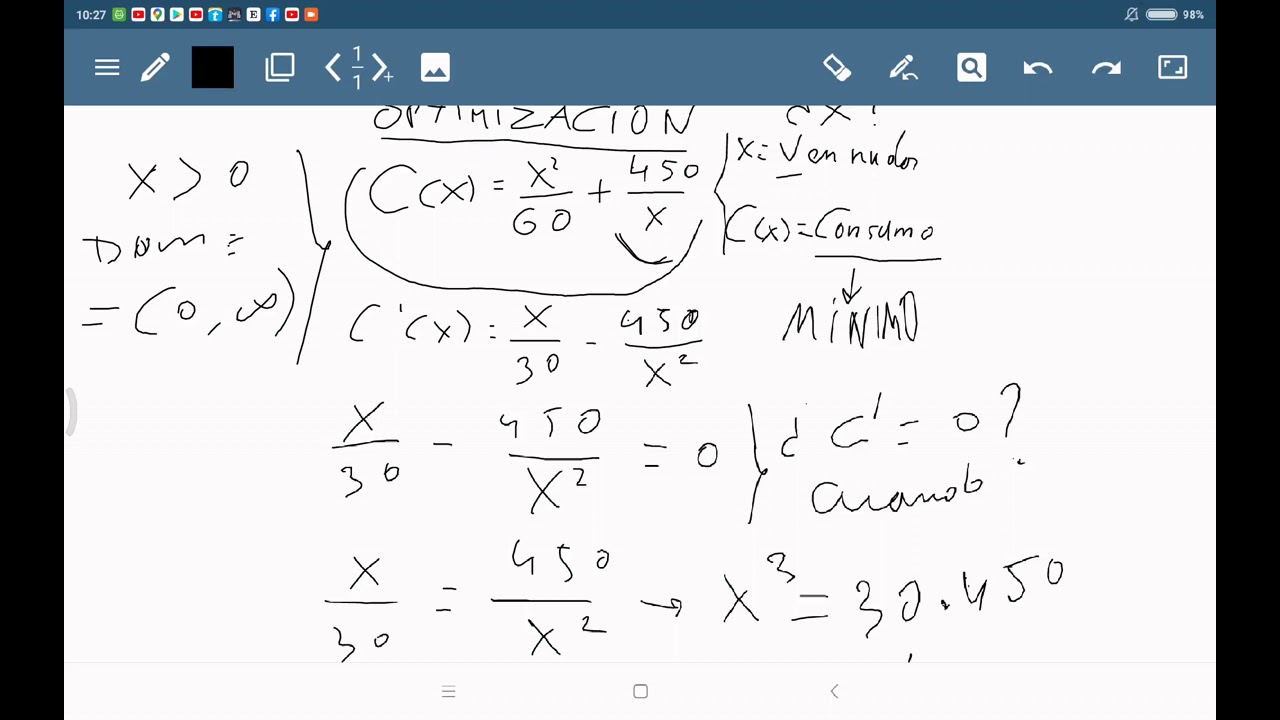 10:27
98%
1
1
OPTIMIZACION
¿X?
X > 0
Dom =
= (0, ∞)
C(x) = X²/60 + 450/X
X = V en nudos
C(x) = Consumo
MíNIMO
C'(x) = X/30 - 450/X²
X/30 - 450/X² = 0
¿C' = 0?
Cuando
X/30 = 450/X² → X³ = 30.450